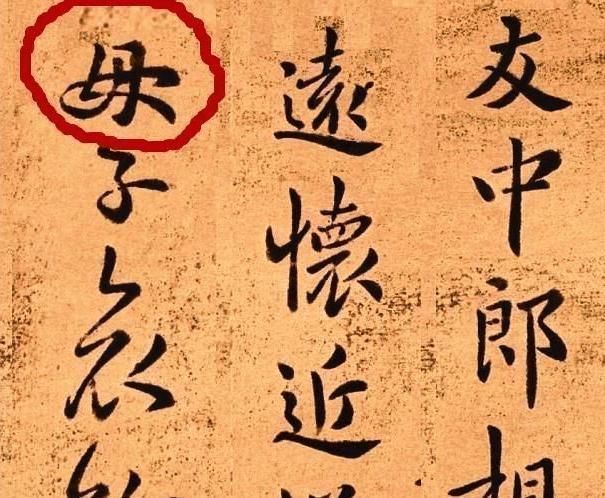 友中郎相
遠懷近
母子衣